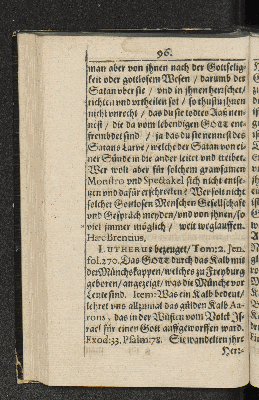 96.
man aber von ihnen nach der Gottselig-
keit oder gottlosem Wesen / darumb der
Satan vber sie / vnd in ihnen herrschet /
richten vnd vrtheilen sol / so thustu ihnen
nicht vnrecht / das du sie todtes Aas nen-
nest / die da vom lebendigen GOTT ent-
frembdet sind / ja das du sie nennest des
Satans Larve / welche der Satan von ei-
ner Sünde in die ander leitet vnd treibet.
Wer wolt aber für solchem grawsamen
Monstro vnd Spectakel sich nicht entse-
tzen vnd dafür erschrecken? Wer solt nicht
solcher Gotlosen Menschen Gesellschaft
vnd Gespräch meyden / vnd von ihnen / so
viel immer möglich / weit weglauffen.
Hæc Brentius.
LUTHERUS bezeuget / Tom: 2. Jen.
fol. 270. Das GOTT durch das Kalb mit
der Münchskappen / welches zu Freyburg
geboren / angezeigt / was die Münche vor
Leute sind. Item: Was ein Kalb bedeut /
lehret vns allzumal das gülden Kalb Aa-
rons, das in der Wüsten vom Volck Js-
rael für einen Gott auffgeworffen ward.
Exod: 33. Psalm: 78. Sie wandelten ihre
Herr-